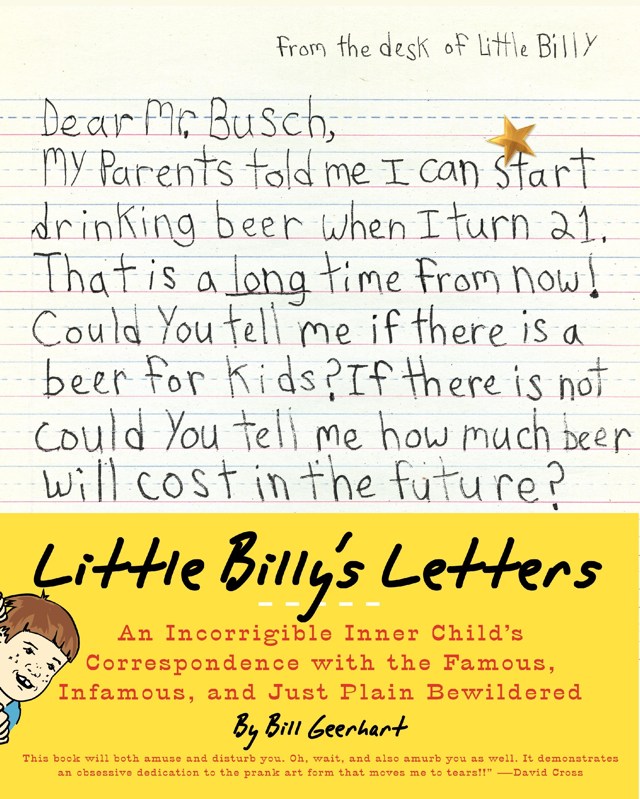 From the desk of Little Billy
Dear Mr. Busch,
My Parents told me I can start
drinking beer when I turn 21.
That is a long time from now!
Could You tell me if there is a
beer for kids? If there is not
could You tell me how much beer
will cost in the future?
Little Billy's Letters
An Incorrigible Inner Child's
Correspondence with the Famous,
Infamous, and Just Plain Bewildered
By Bill Geerhart
This book will both amuse and disturb you. Oh, wait, and also amurb you as well. It demonstrates
an obsessive dedication to the prank art form that moves me to tears!!" —David Cross